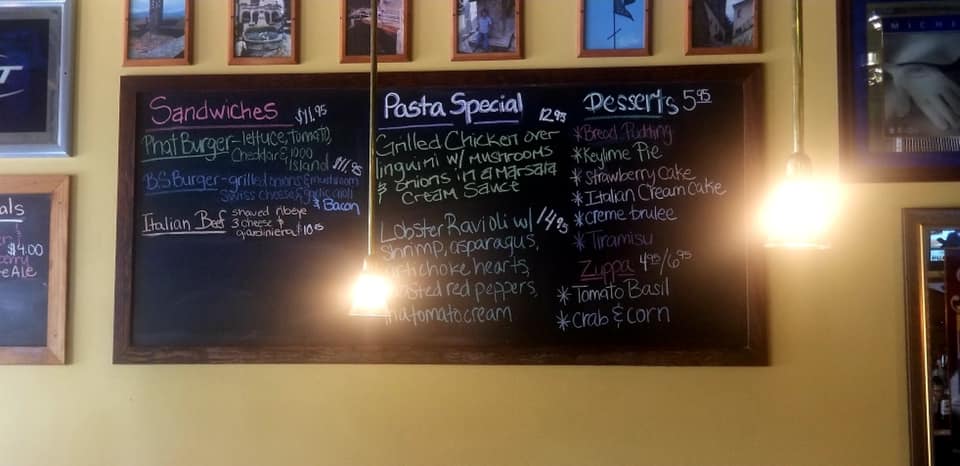 Sandwiches $11.95
Phat Burger - lettuce, tomato,
Cheddar & 1000
Island $11.95
B.S Burger - grilled onions & mushroom
Swiss cheese & garlic aioli
& Bacon
Italian Beef shaved ribeye
3 cheese &
giardiniera! 10.95
Pasta Special 12.95
Grilled Chicken over
linguini w/ mushrooms
& onions in a marsala
Cream Sauce
Lobster Ravioli w/ 14.95
shrimp, asparagus,
artichoke hearts,
roasted red peppers,
in a tomato cream
Desserts 5.95
*Bread Pudding
*Keylime Pie
*strawberry Cake
*Italian Cream Cake
*creme brulee
*Tiramisu
Zuppa 4.95/6.95
*Tomato Basil
*Crab & Corn
als
$4.00
erry
e Ale
MICHI
T